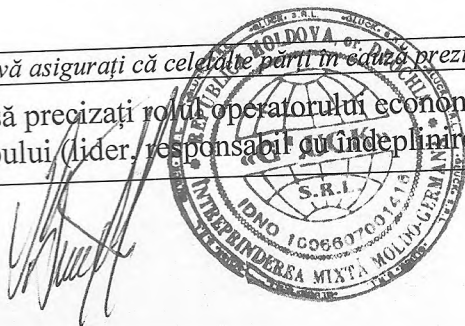 vă asigurați că celelalte părți în cauză prezi
să precizați rolul operatorului econom
pului (lider, responsabil cu îndeplinire
REPUBLICA MOLDOVA or.
S.R.L.
IDNO
ÎNTREPRINDEREA MIXTĂ MOLDO-GERMANĂ